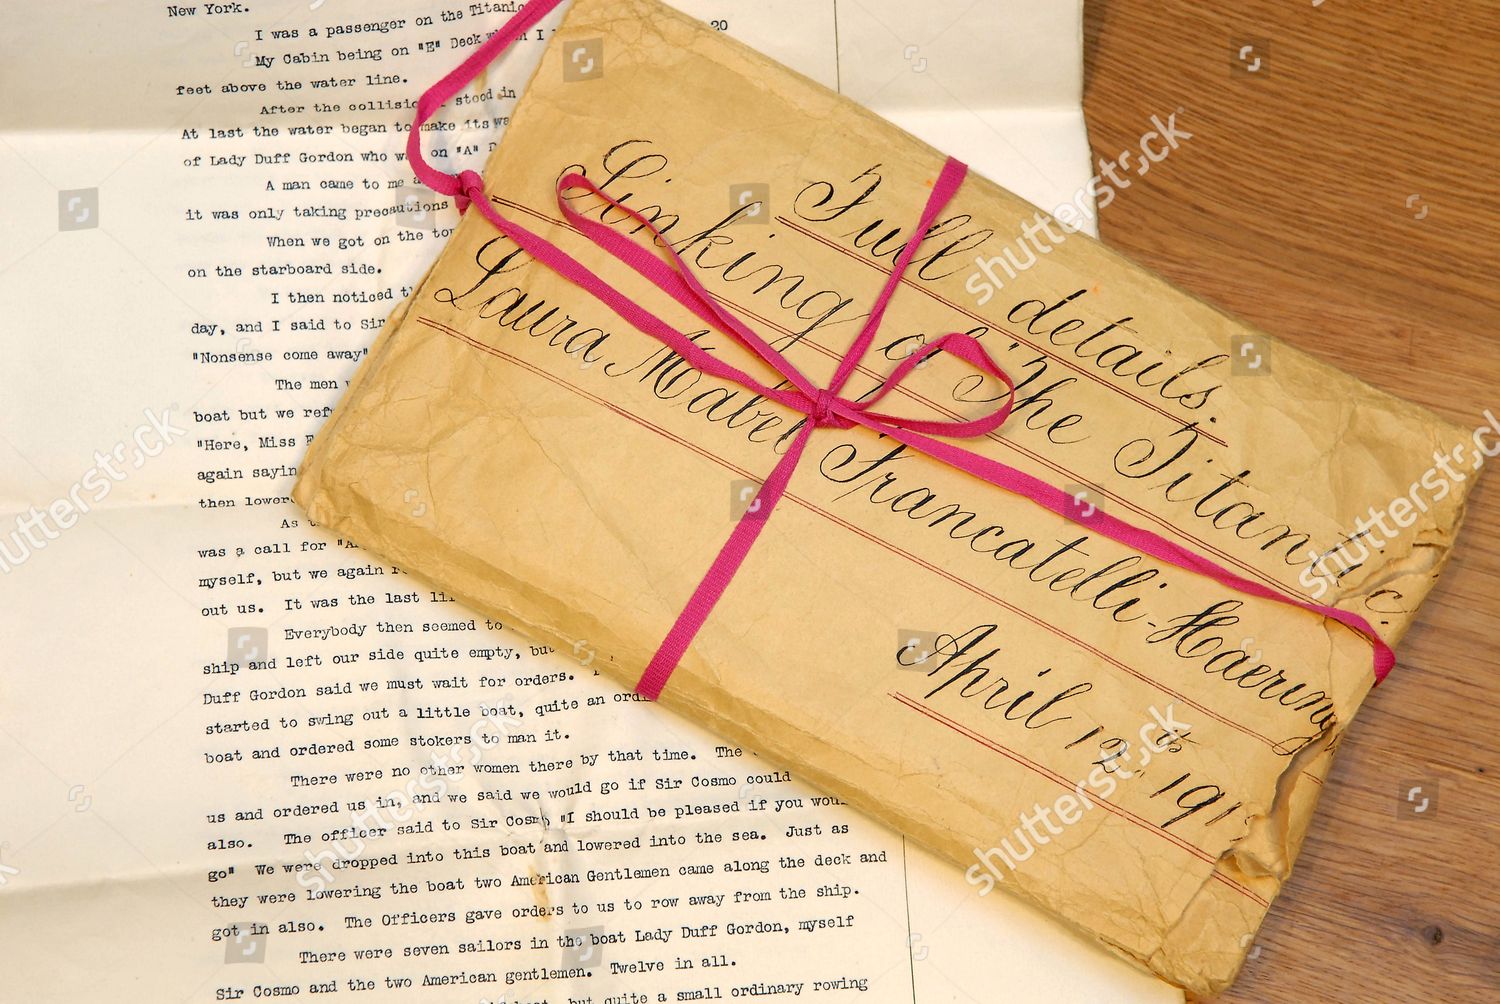 New York.
I was a passenger on the Titanic
20
My Cabin being on "E" Deck which I
feet above the water line.
After the collision I stood in
At last the water began to make its
of Lady Duff Gordon who was on "A"
A man came to me
it was only taking precautions
When we got on the top
on the starboard side.
I then noticed
day, and I said to Sir
"Nonsense come away"
The men
boat but we
"Here, Miss
again saying
then lowered
As
was a call for
myself, but we again
out us. It was the last
Everybody then seemed to
ship and left our side quite empty, but
Duff Gordon said we must wait for orders.
started to swing out a little boat, quite an
boat and ordered some stokers to man it.
There were no other women there by that time. The
us and ordered us in, and we said we would go if Sir Cosmo could
also. The officer said to Sir Cosmo "I should be pleased if you would
go" We were dropped into this boat and lowered into the sea. Just as
they were lowering the boat two American Gentlemen came along the deck and
got in also. The Officers gave orders to us to row away from the ship.
There were seven sailors in the boat Lady Duff Gordon, myself
Sir Cosmo and the two American gentlemen. Twelve in all.
but quite a small ordinary rowing
Full details.
Sinking of "The Titanic
Laura Mabel Francatelli-Haering
April 12th 191
shutterstock
shutterstock
shutterstock
shutterstock
shutterstock
shutterstock